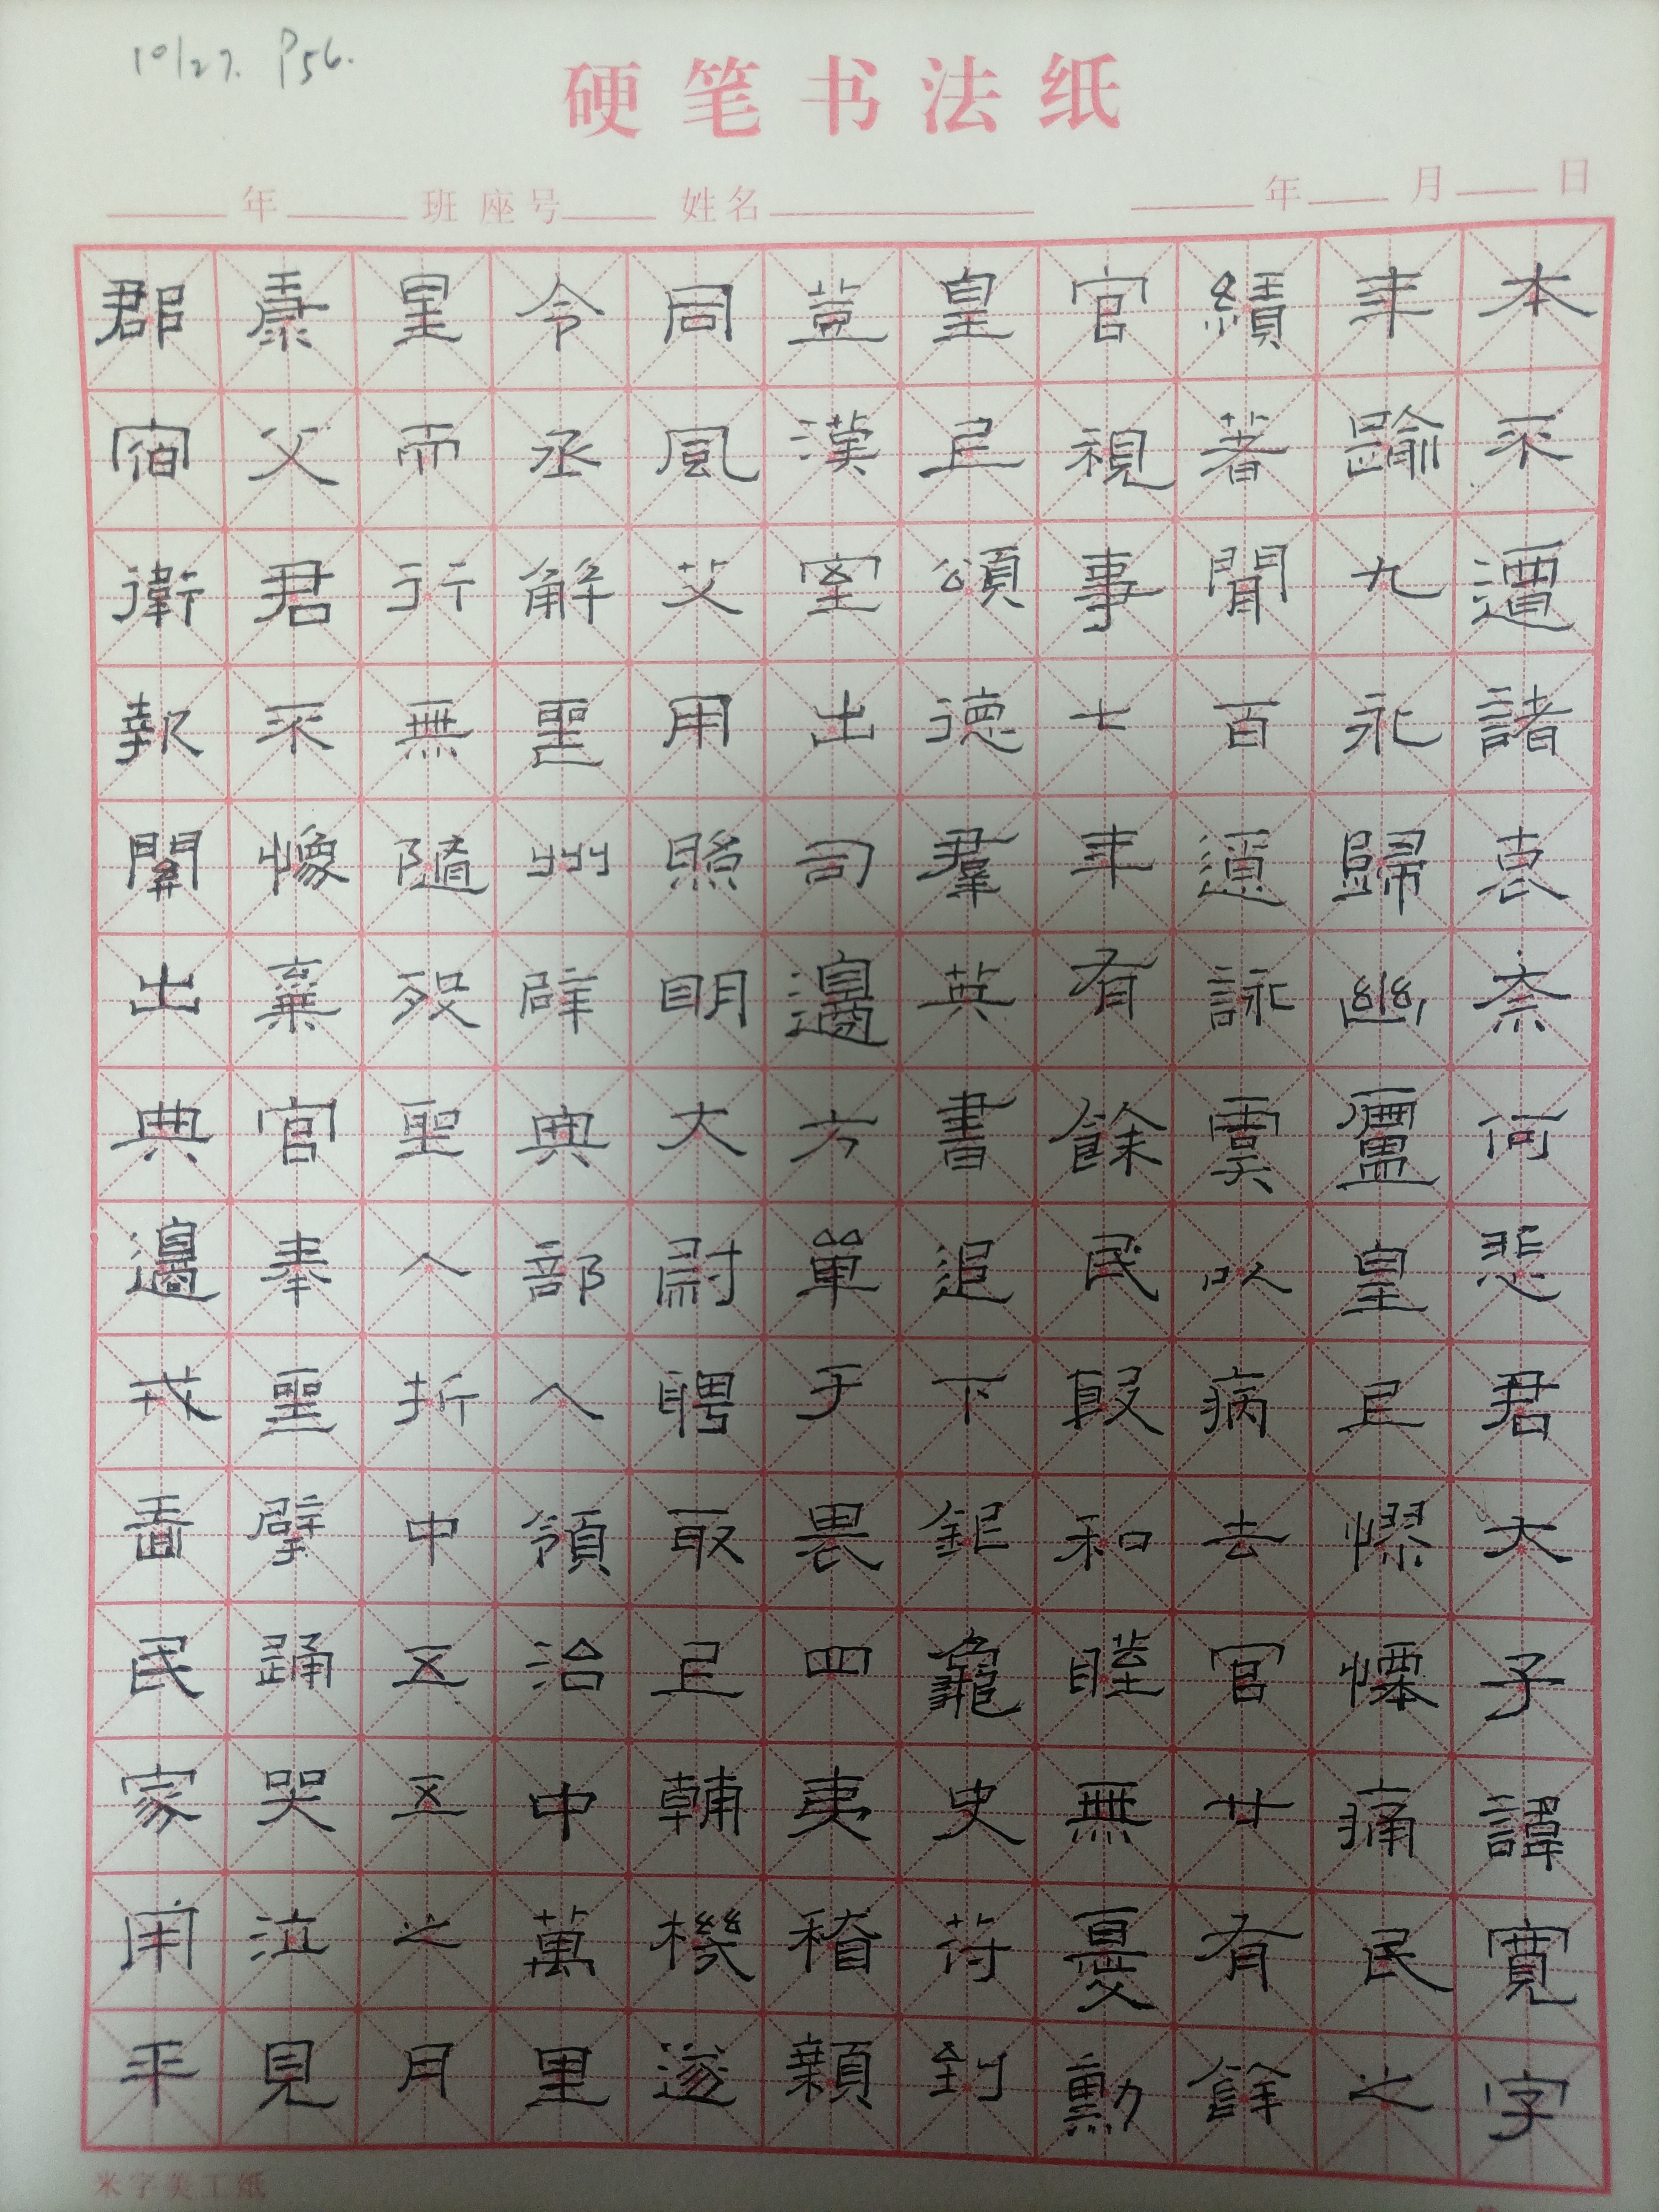 10/27. P56.
硬笔书法纸
年 班 座号 姓名 年 月 日
本不遭諸哀奈何悲君大子諱寬字
年踰九永歸幽廬皇臣憀慄痛民之
績著聞百遵詠虞以病去官廿有餘
官視事七年有餘民殷和睦無憂勳
皇臣頌德羣英書追下銀龜史符到
漢室出司邊方單于畏四夷稽顙
同風艾用照明大尉聘取臣輔機遂
令丞解聖州辟典部入領治中萬里
星而行無隨殁聖人折中五五之月
父君不像棄官奉聖擗踊哭泣見
郡宿衛報關出典邊戎民家用平
米字美工纸